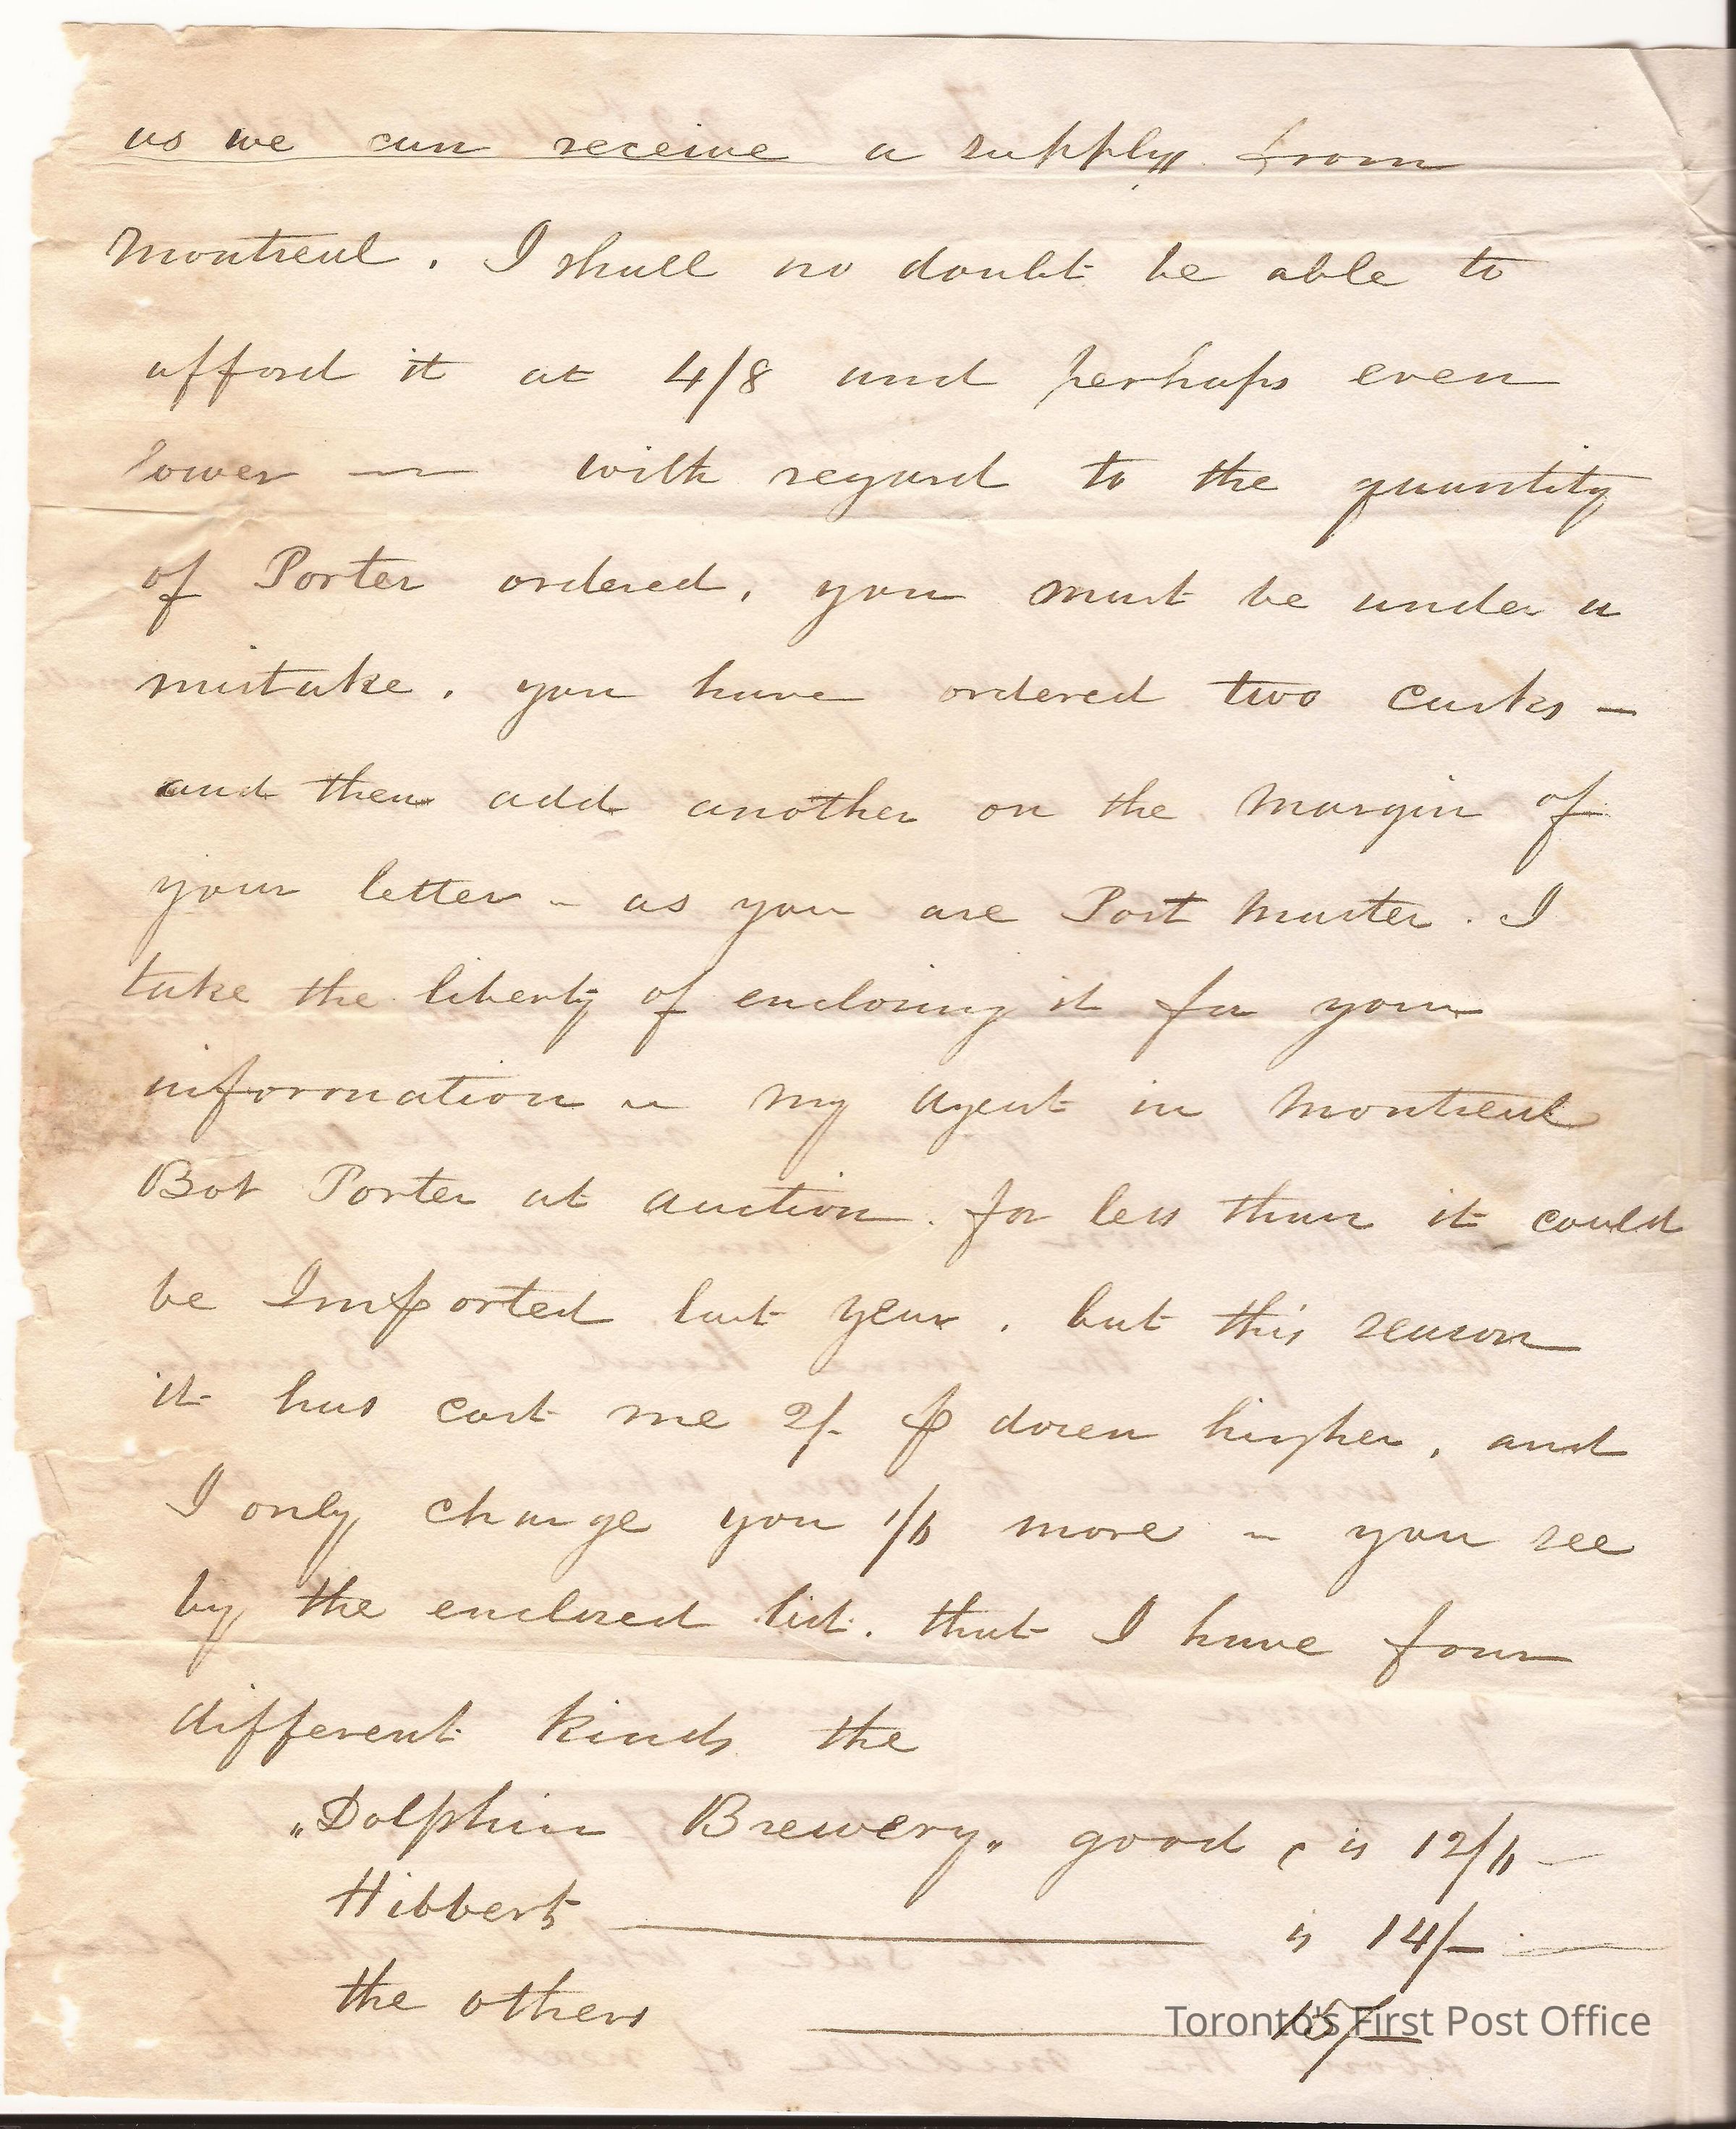 as we can receive a supply„ from
Montreal. I shall no doubt be able to
afford it at 4/8 and perhaps even
lower — with regard to the quantity
of Porter ordered, you must be under a
mistake. you have ordered two casks —
and then add another on the margin of
your letter - as you are Post Master. I
take the liberty of enclosing it for your
information — my agent in Montreal
Bot Porter at auction. for less than it could
be Imported last year. but this season
it has cost me 2/- ⅌ dozen higher, and
I only charge you 1/6 more - you see
by the enclosed list. that I have four
different kinds the
„Dolphin Brewery„ good, is 12/6 —
Hibberts — is 14/— —
the others — 15/—
Toronto's First Post Office